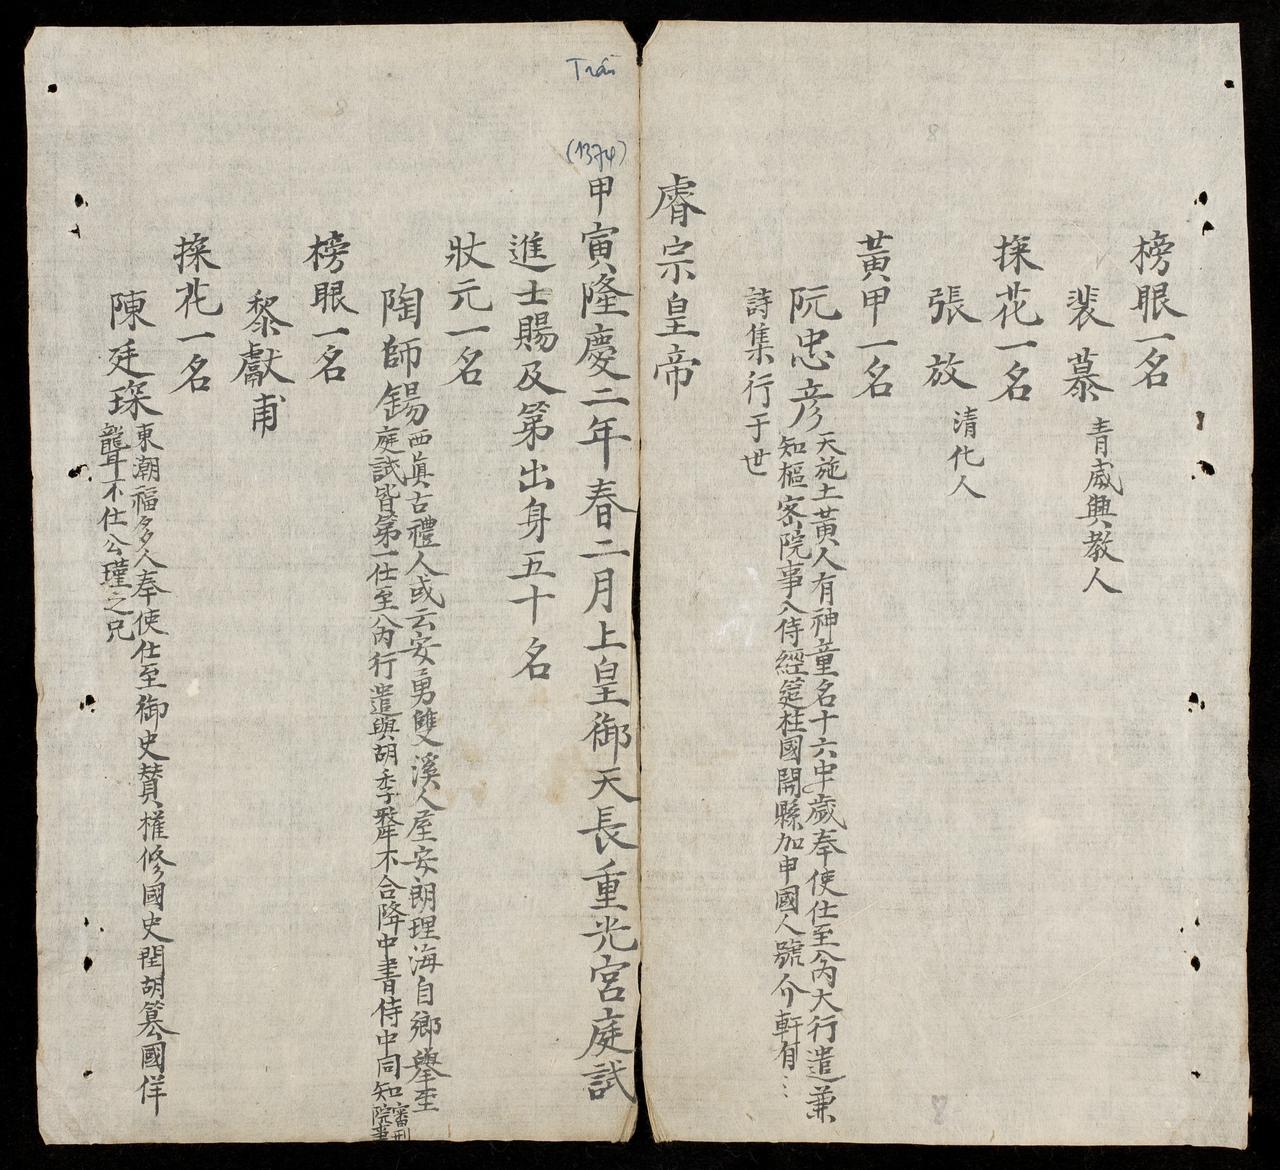 榜眼一名
裴慕 青威興教人
探花一名
張放 清化人
黃甲一名
阮忠彥 天施土黃人有神童名十六中歲奉使仕至入內大行遣兼
知樞密院事入侍經筵柱國開縣加申國人號介軒有
詩集行于世
睿宗皇帝
Trần
(1374)
甲寅隆慶二年春二月上皇御天長重光宮庭試
進士賜及第出身五十名
狀元一名
陶師錫 西真古禮人或云安勇雙溪人屋安朗理海自鄉舉至
庭試皆第一仕至入內行遣與胡季犛不合降中書侍中同知審刑
院事
榜眼一名
黎獻甫
探花一名
陳廷琛 東潮福多人奉使仕至御史贊權修國史閏胡篡國佯
聾不仕公瑾之兄